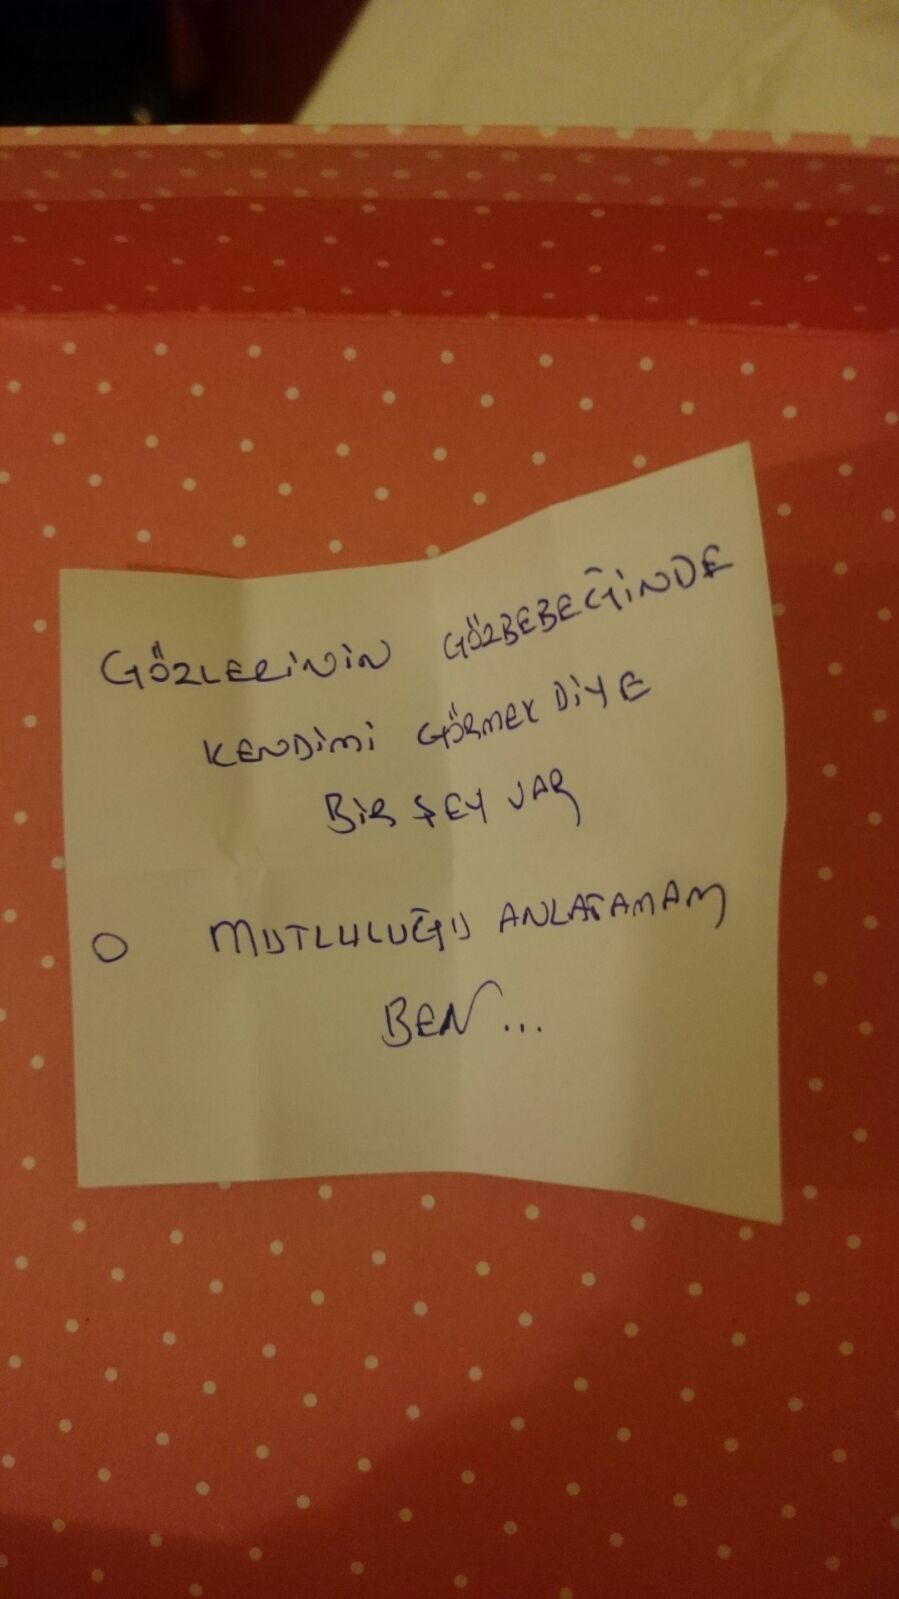 GÖZLERİNİN GÖZBEBEĞİNDE
KENDİMİ GÖRMEK DİYE
BİR ŞEY VAR
O MUTLULUĞU ANLATAMAM
BEN...